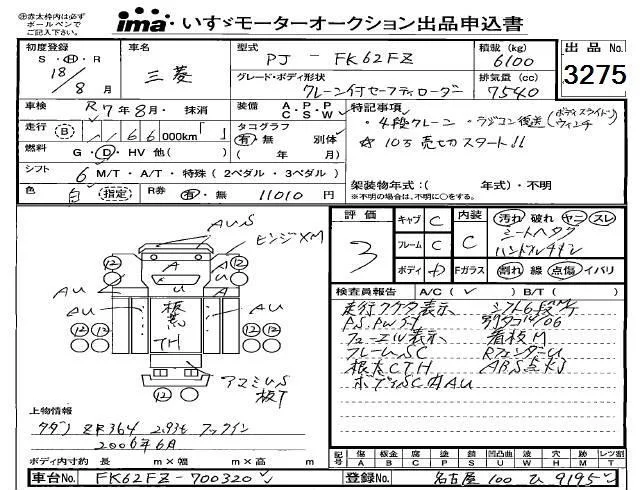 赤太枠内は必ずボールペンでご記入下さい。
ima・いすゞモーターオークション出品申込書
初度登録 S・H・R 18/8月
車名 三菱
型式 PJ - FK62FZ
積載 (kg) 6100
出品No. 3275
グレード・ボディ形状 クレーン付セーフティローダー
排気量 (cc) 7540
車検 R7年8月・抹消
装備 A.P.P C.S.W
特記事項
・4段クレーン ・ラジコン後送 (ボディスライド ウィンチ
☆10万売切スタート!!
走行 B 66 000km「 」
タコグラフ 有・無 別体 ( 年 月)
燃料 G・D・HV 他( )
シフト 6 M/T・A/T・特殊(2ペダル・3ペダル)
架装物年式:( 年式)・不明
※不明の場合は、不明に○をする。
色 白 指定
R券 有・無 11010円
評価 3
キャブ C
内装 C
汚れ 破れ ヤニ スレ
フレーム C
ボディ D
Fガラス 割れ 線 点傷 イバリ
検査員報告 A/C( ✓ ) B/T( )
走行フケタ表示 シフト6段
P.S.PW
表示 看板M
フレームSC RフェンダーU
根太CTH ABS点灯
ボディSC内AU
AUS
ヒンジXM
12 12
A A
U
AU AU
AU AU
板
TH
12 12 12 12
12 12
板T
上物情報
タダノ ZR364 2.93t フックイン
2006年6月
ボディ内寸約 長 m×幅 m×高 m
記号 傷A 板金B 腐C 塗P 錆S 凹凸曲U 波W 穴H 跡M レンズ割T
車台No. FK62FZ-700320
登録No. 名古屋 100 ひ 9195